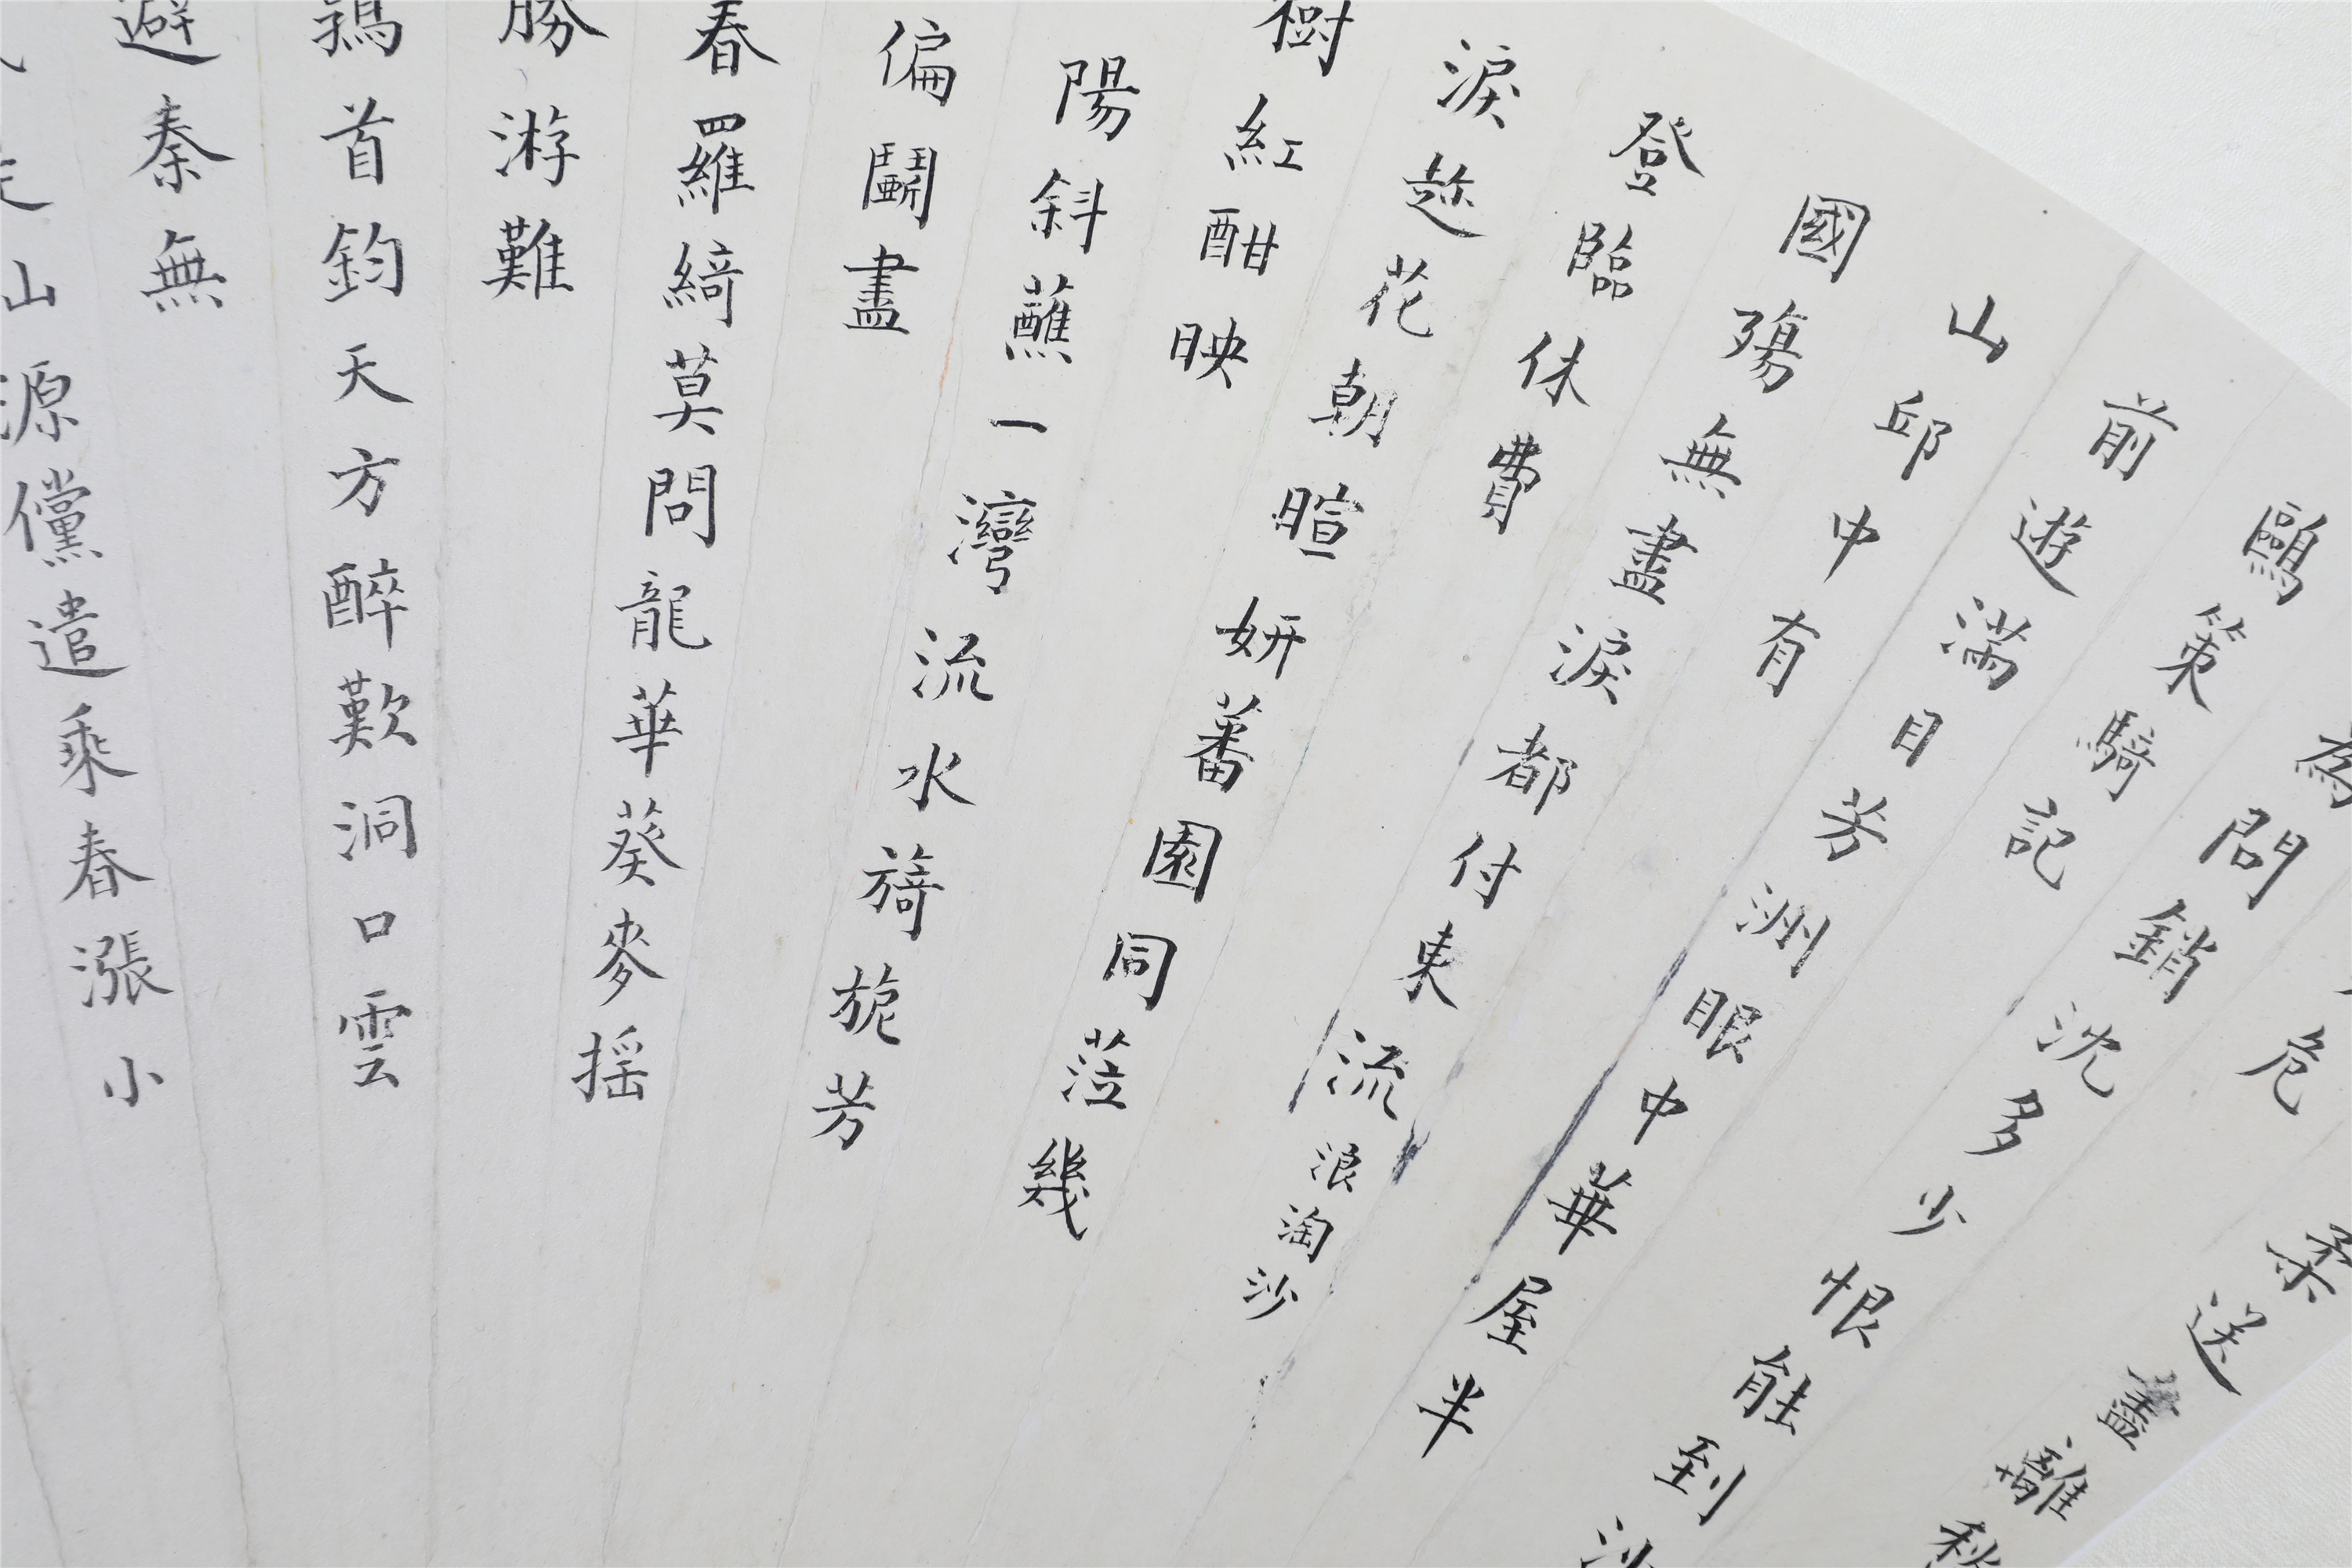 柔送盡離秋
危
為問銷沈多少恨能到沙
鷗策騎記
前遊滿目芳洲眼中華屋半
山邱中有
國殤無盡淚都付東流 浪淘沙
登臨休費
淚趁花朝暄妍蕃園同蒞幾
樹紅酣映
陽斜蘸一灣流水旖旎芳
偏鬭盡
春羅綺莫問龍華葵麥搖
勝游難
首鈞天方醉歎洞口雲
避秦無
山源儻遣乘春漲小